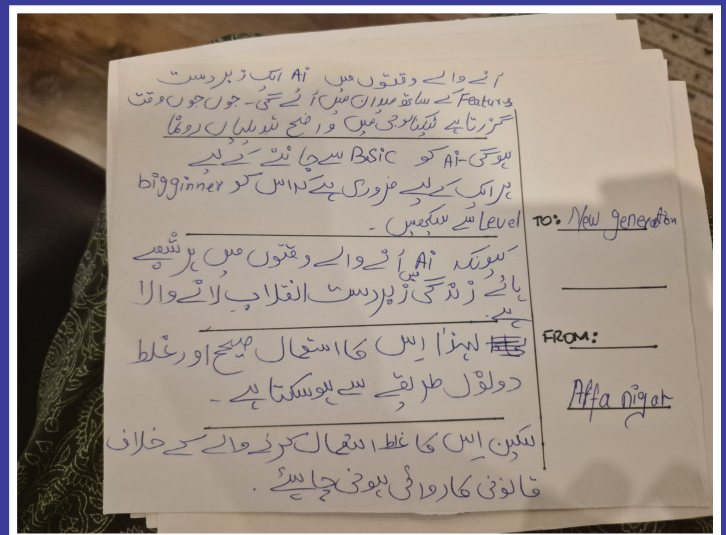 آنے والے وقتوں میں Ai ایک زبردست
Features کے ساتھ میدان میں آئے گی۔ جوں جوں وقت
گزرتا ہے ٹیکنالوجی میں واضح تبدیلیاں رونما
ہوگی۔ Ai کو Basic سے جاننے کے لیے
ہر ایک کے لیے ضروری ہے کہ اس کو bigginner
Level سے سیکھیں۔
کیونکہ Ai آنے والے وقتوں میں ہر شعبے
ہائے زندگی میں زبردست انقلاب لانے والا
ہے۔
لہذا اس کا استعمال صیحح اور غلط
دونوں طریقے سے ہوسکتا ہے۔
لیکن اس کا غلط استعمال کرنے والے کے خلاف
قانونی کاروائی ہونی چاہیئے۔
TO: New generation
FROM:
Affa nigar